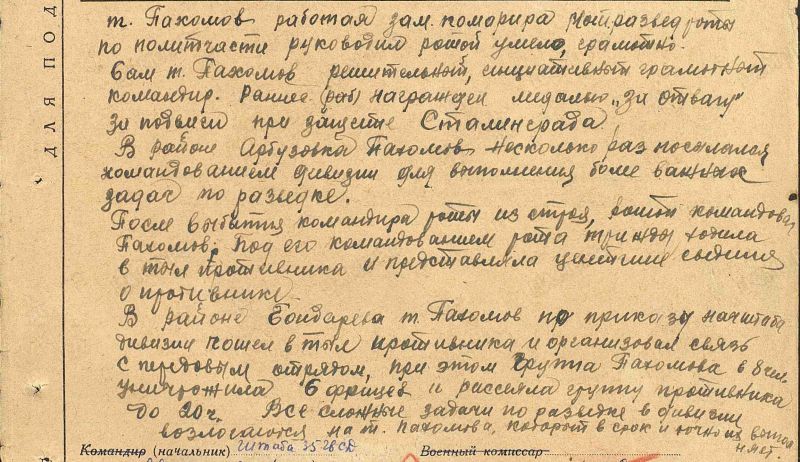 ДЛЯ ПОД
т. Пахомов работая зам. комдира мотразведроты
по политчасти руководил ротой умело, грамотно.
Сам т. Пахомов решительный, инциативный грамотный
командир. Раннее (раб) награжден медалью „За отвагу"
за подвиги при защите Сталинграда.
В районе Арбузовка Пахомов несколько раз посылался
командованием дивизии для выполнения более важных
задач по разведке.
После выбытия командира роты из строя, ротой командовал
Пахомов. Под его командованием рота трижды ходила
в тыл противника и представляла ценнейшие сведения
о противнике.
В районе Бондарева т. Пахомов по приказу начштаба
дивизии пошел в тыл противника и организовал связь
с передовым отрядом, при этом группа Пахомова в 8 чел.
уничтожила 6 фрицев и рассеяла группу противника
до 20 ч. Все сложные задачи по разведке в дивизии
возлогаются на т. Пахомова, который в срок и точно их выпол
няет.
Командир (начальник) штаба 35 гв СД Военный комиссар